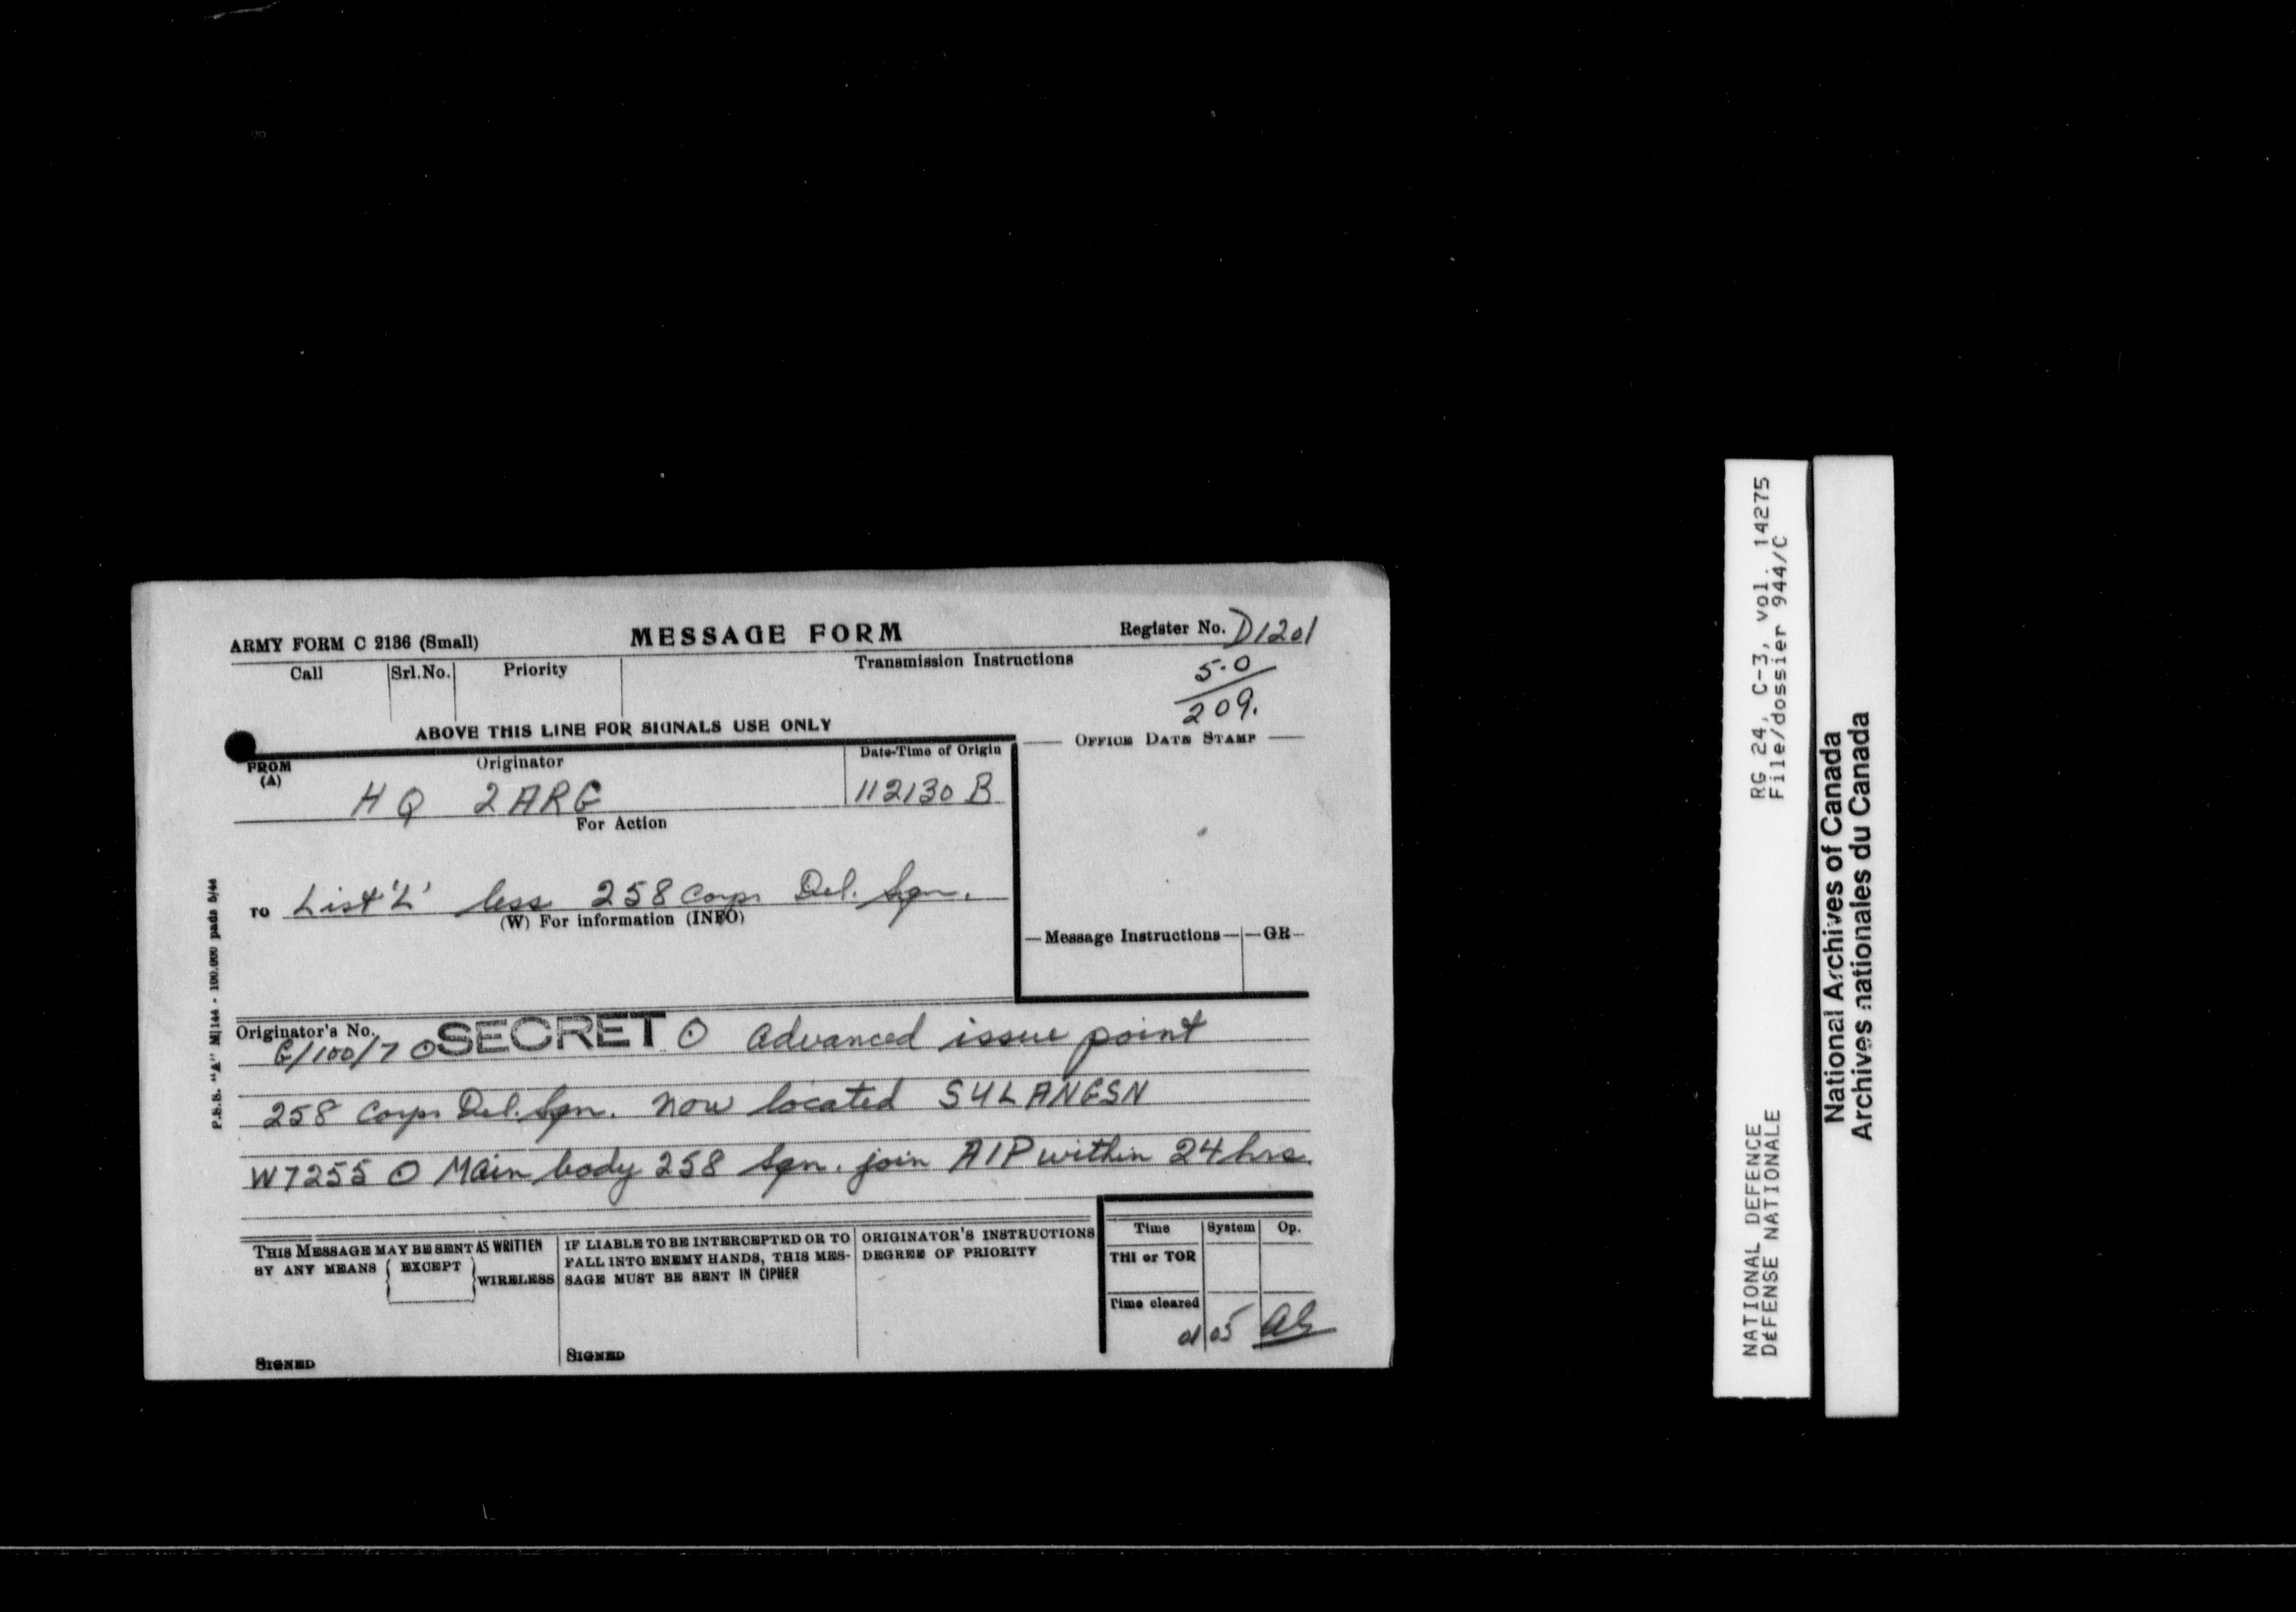 ARMY FORM C 2136 (Small)
MESSAGE FORM
Register No. D1201
Call Srl.No. Priority Transmission Instructions
5.0
209.
ABOVE THIS LINE FOR SIGNALS USE ONLY
FROM (A) Originator Date-Time of Origin
OFFICE DATE STAMP
HQ 2ARG 112130 B
For Action
TO List 'L' less 258 Corps Del. Sqn.
(W) For information (INFO)
Message Instructions GR
P.S.S. "A" M|144 - 100.000 pads 5/44
Originator's No.
G/100/7 ⊙ SECRET ⊙ Advanced issue point
258 Corps Del. Sqn. now located SULANGSN
W7255 ⊙ Main body 258 Sqn. join AIP within 24 hrs.
THIS MESSAGE MAY BE SENT AS WRITTEN
BY ANY MEANS EXCEPT WIRELESS
SIGNED
IF LIABLE TO BE INTERCEPTED OR TO
FALL INTO ENEMY HANDS, THIS MES-
SAGE MUST BE SENT IN CIPHER
SIGNED
ORIGINATOR'S INSTRUCTIONS
DEGREE OF PRIORITY
Time System Op.
THI or TOR
Time cleared
05
NATIONAL DEFENCE RG 24, C-3, vol. 14275
DÉFENSE NATIONALE File/dossier 944/C
National Archives of Canada
Archives nationales du Canada